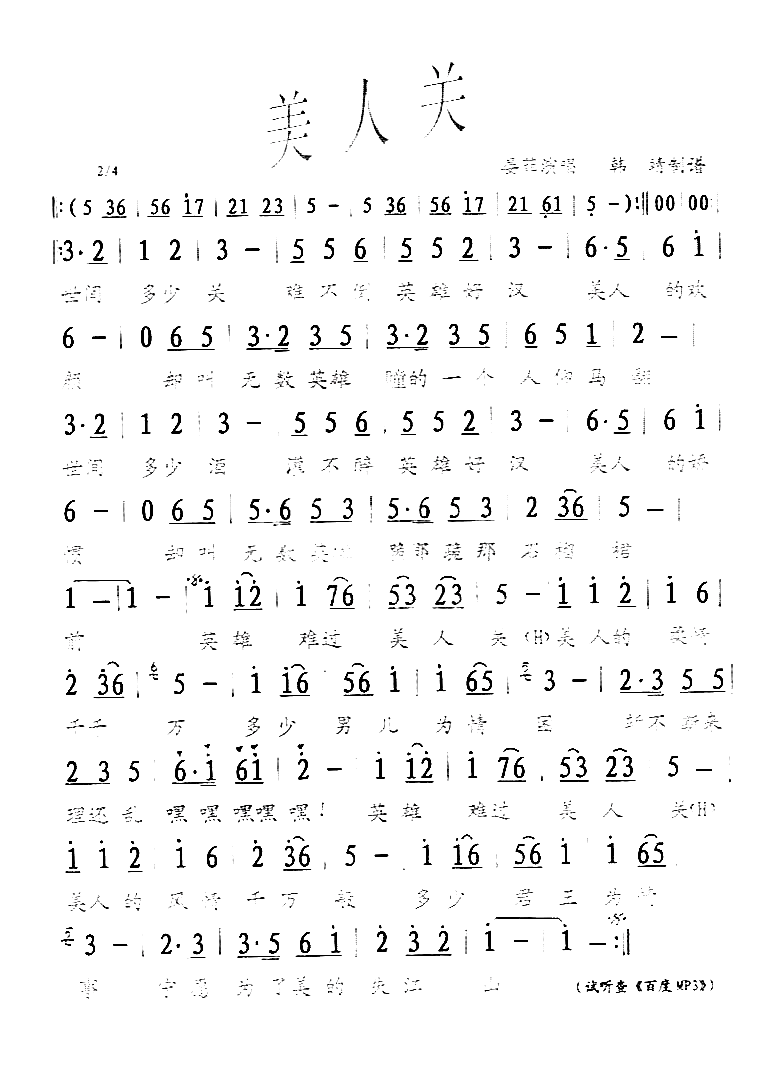 美人关
2/4
演唱 韩 靖制谱
|:(5 36 | 56 i7 | 21 23 | 5 - | 5 36 | 56 i7 | 21 61 | 5 - ):|| 00 00 |
|:3·2 | 1 2 | 3 - | 5 5 6 | 5 5 2 | 3 - | 6·5 | 6 i |
世间 多少 关 难不倒 英雄好 汉 美人 的欢
6 - | 0 6 5 | 3·2 3 5 | 3·2 3 5 | 6 5 1 | 2 - |
颜 却叫 无数英雄 瞳的一个 人仰马翻
3·2 | 1 2 | 3 - | 5 5 6 | 5 5 2 | 3 - | 6·5 | 6 i |
世间 多少 酒 不醉 英雄好 汉 美人 的娇
6 - | 0 6 5 | 5·6 5 3 | 5·6 5 3 | 2 36 | 5 - |
却叫 无数英 那 那 石榴裙
1 - | 1 - | i i2 | i 76 | 53 23 | 5 - | i i 2 | i 6 |
前 英雄 难过 美人 关(H)美人的柔情
2 36 | 5 - | i i6 | 56 i | i 65 | 3 - | 2·3 5 5 |
千千 万 多少 男儿 为情 困 不断来
2 3 5 | 6·i 6i | 2 - | i i2 | i 76 | 53 23 | 5 - |
理还乱 嘿嘿嘿嘿嘿! 英雄 难过 美人 关(H)
i i 2 | i 6 | 2 36 | 5 - | i i6 | 56 i | i 65
美人的 风情 千万 般 多少 君王 为情
3 - | 2·3 | 3·5 6 i | 2 3 2 | i - | i - :||
宁愿 为了美的 失江 山 (试听查《百度MP3》)